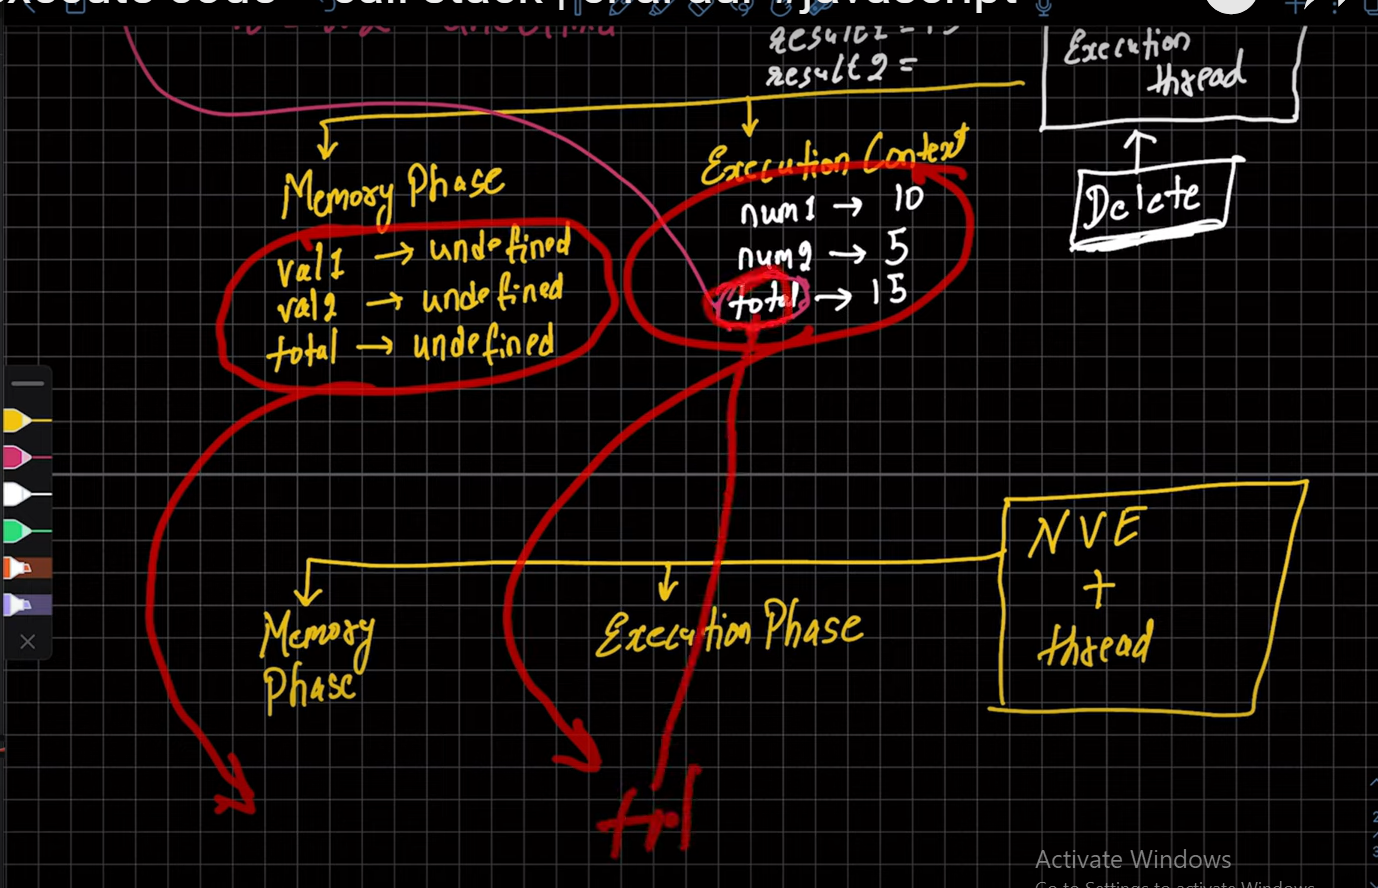 execute code
call stack
#javascript
result2 =
Execution
thread
Delete
Memory Phase
val1 → undefined
val2 → undefined
total → undefined
Execution Context
num1 → 10
num2 → 5
total → 15
NVE
+
thread
Memory
Phase
Execution Phase
Activate Windows
Go to Settings to activate Windows.